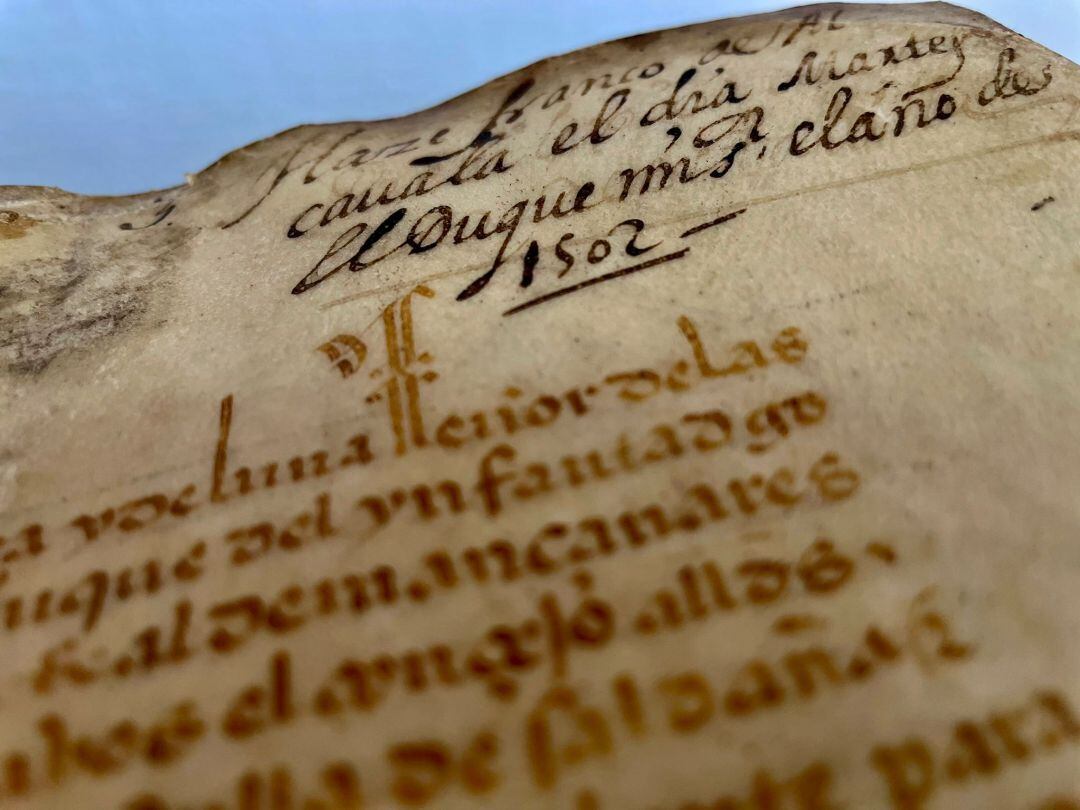 Haze franco de Al
cauala el dia Martes
El Duque mi s.r el año de
1502
y de luna señor de las
uque del ynfantadgo
Real de mancanares
el
de saldaña
para